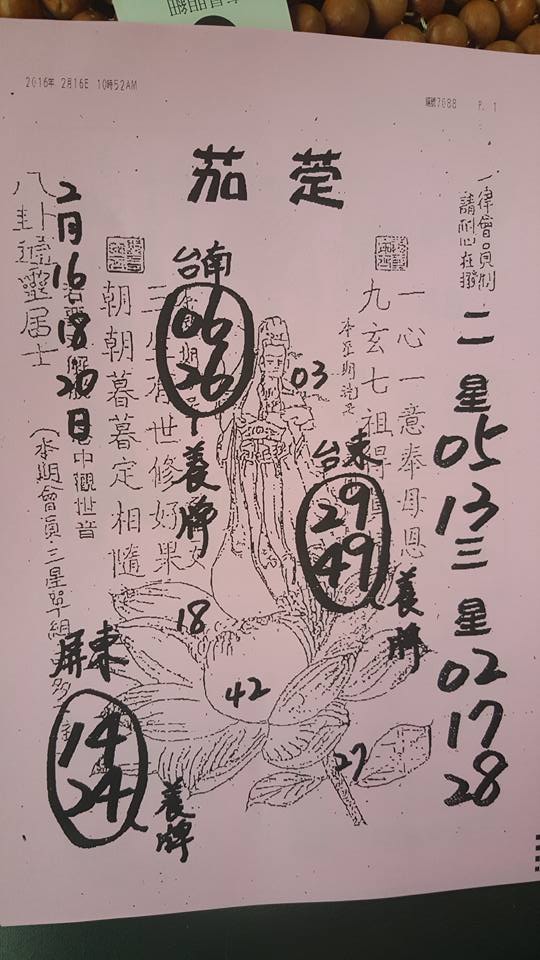 2016年 2月16日 10時52AM
編號7088 P. 1
茄萣
一律會員制
請耐心在撥
二星
05
13
三星
02
17
28
一心一意奉母恩
九玄七祖得
台南
06
26
養牌
03
台東
29
49
養牌
世修好果
朝朝暮暮定相隨
中觀世音
2月16
18
20日
八卦
靈居士
(本期會員三星單組
屏東
14
24
養牌
18
42
27